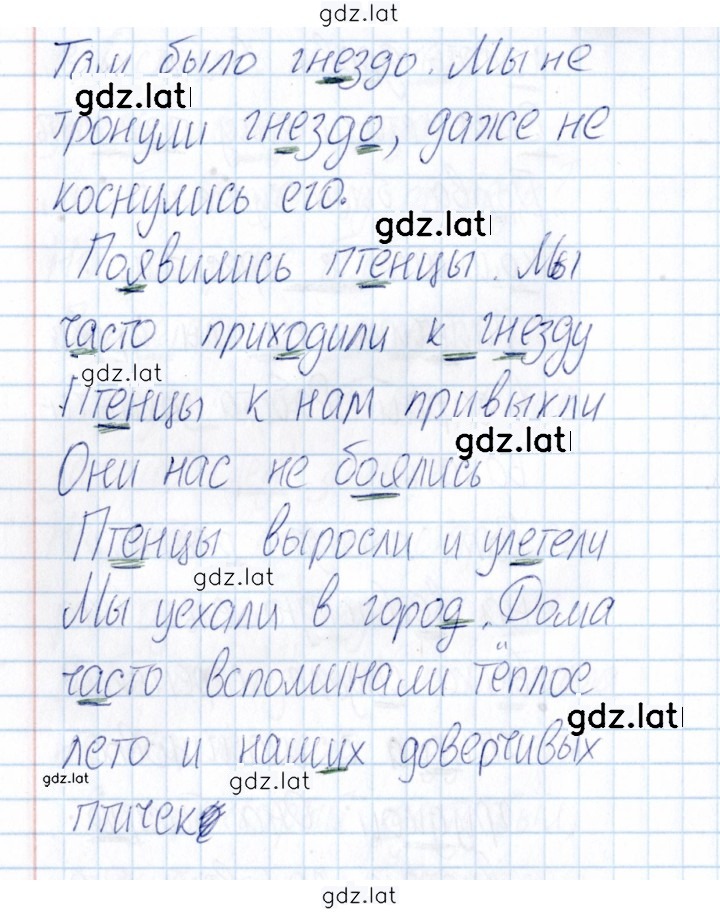 gdz.lat
Там было гнездо. Мы не
gdz.lat
тронули гнездо, даже не
коснулись его.
gdz.lat
Появились птенцы. Мы
часто приходили к гнезду
gdz.lat
Птенцы к нам привыкли
gdz.lat
Они нас не боялись
Птенцы выросли и улетели
gdz.lat
Мы уехали в город. Дома
часто вспоминали тёплое
gdz.lat
лето и наших доверчивых
gdz.lat
gdz.lat
птичек
gdz.lat